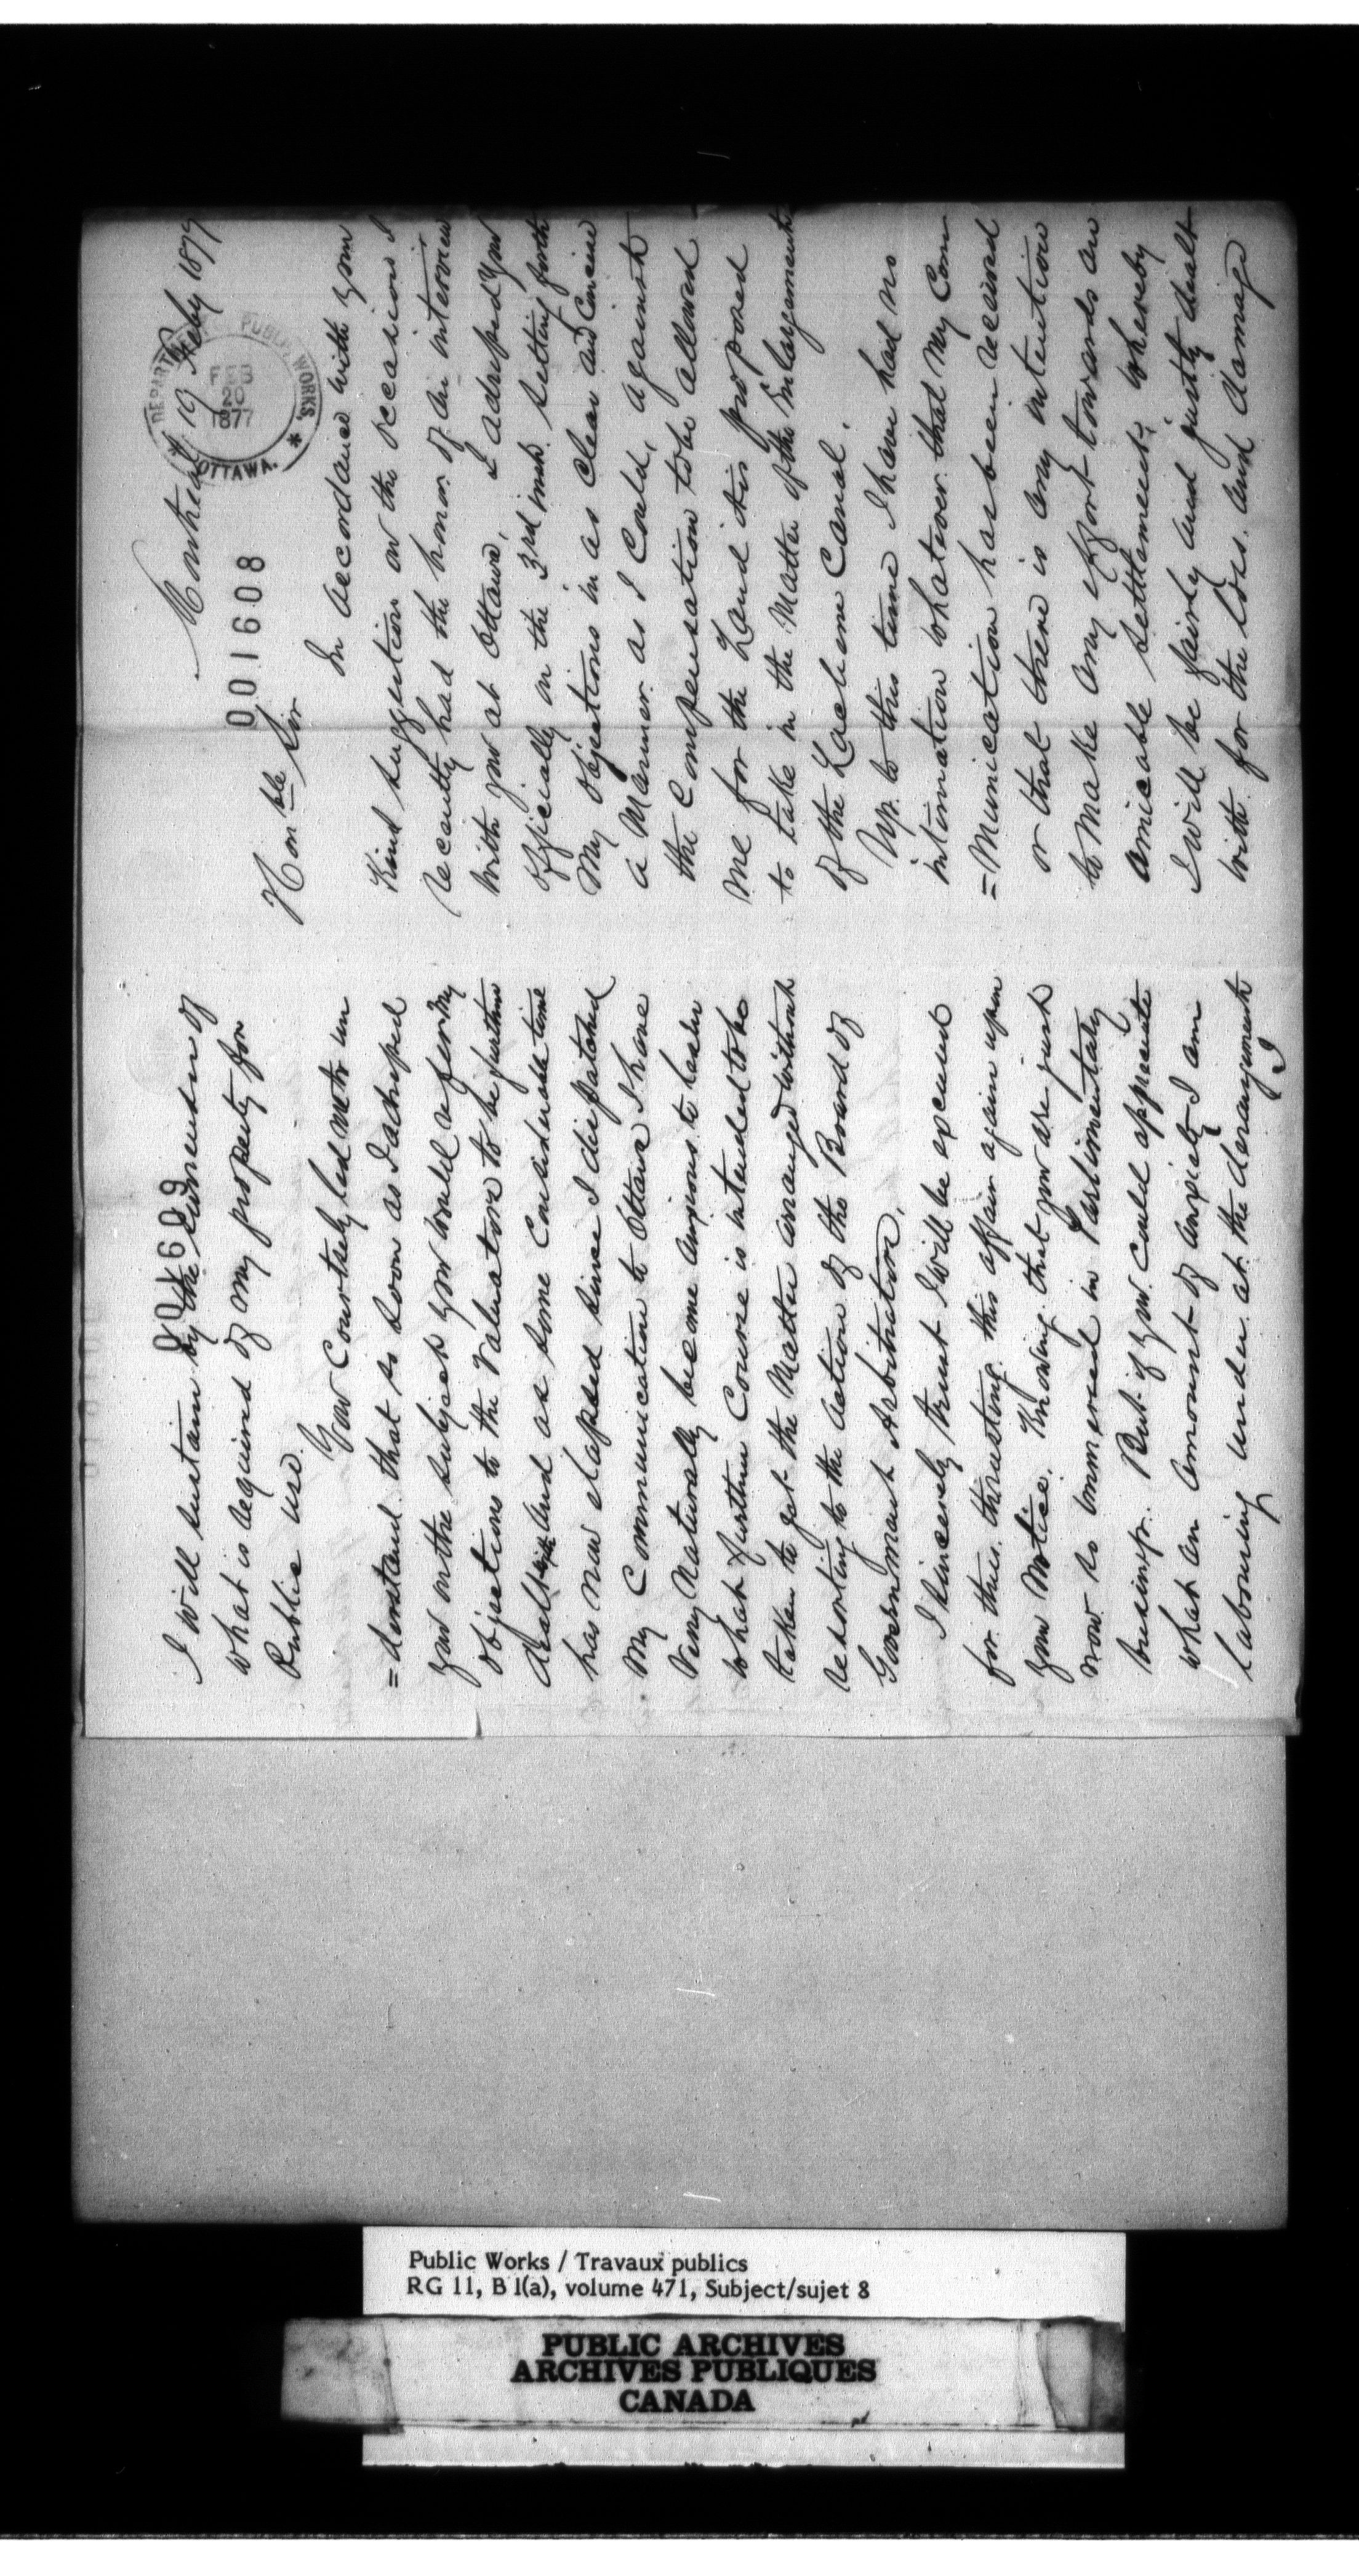 Montreal 19 Feby 1877
DEPARTMENT PUBLIC WORKS,
FEB
20
1877
* OTTAWA. *
001608
Honble Sir
In accordance with your
Kind suggestion on the occasion I
recently had the honor of an interview
with you at Ottawa, I addressed you
Officially on the 3rd inst. setting forth
My objections in as clear and concise
a Manner as I could, against
the Compensation to be allowed
me for the Land it is proposed
to take in the Matter of the Enlargement
of the Lachine Canal.
Up to this time I have had no
intimation whatever that My Com
=Munication has been received
or that there is any intention
to Make any effort towards an
amicable settlement, whereby
I will be fairly and justly dealt
with for the loss and damage
001609
I will sustain by the surrender of
what is required of my property for
Public use.
Your Courtesy led me to un
=derstand that so soon as I addressed
you on the subject you would refer My
objections to the Valuators to be further
dealt with and as some Considerable time
has now elapsed since I dispatched
My Communication to Ottawa I have
Very Naturally become anxious to learn
what further Course is intended to be
taken to get the Matter arranged without
resorting to the action of the Board of
Government Arbitrators.
I sincerely trust I will be excused
for thus thrusting this affair again upon
your Notice. Knowing that you are just
now so immersed in Parliamentary
business. But if you could appreciate
what an amount of anxiety I am
labouring under at the derangement
I
Public Works / Travaux publics
RG 11, B 1(a), volume 471, Subject/sujet 8
PUBLIC ARCHIVES
ARCHIVES PUBLIQUES
CANADA